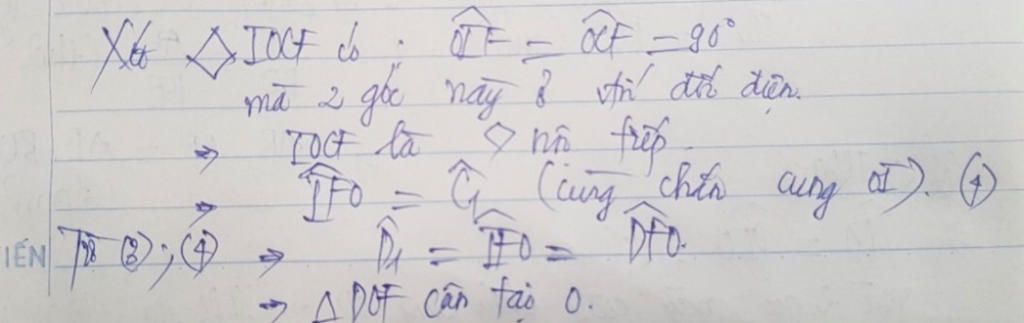 Xét ◇ IOCF có : \widehat{OIF} = \widehat{OCF} = 90°
mà 2 góc này ở vị trí đối diện.
⇒ IOCF là ◇ nội tiếp.
⇒ \widehat{IFO} = \widehat{C_1} (cùng chắn cung OI). (4)
IẾN Từ (3); (4) ⇒ \widehat{D_1} = \widehat{IFO} = \widehat{DFO}.
⇒ △ DOF cân tại O.